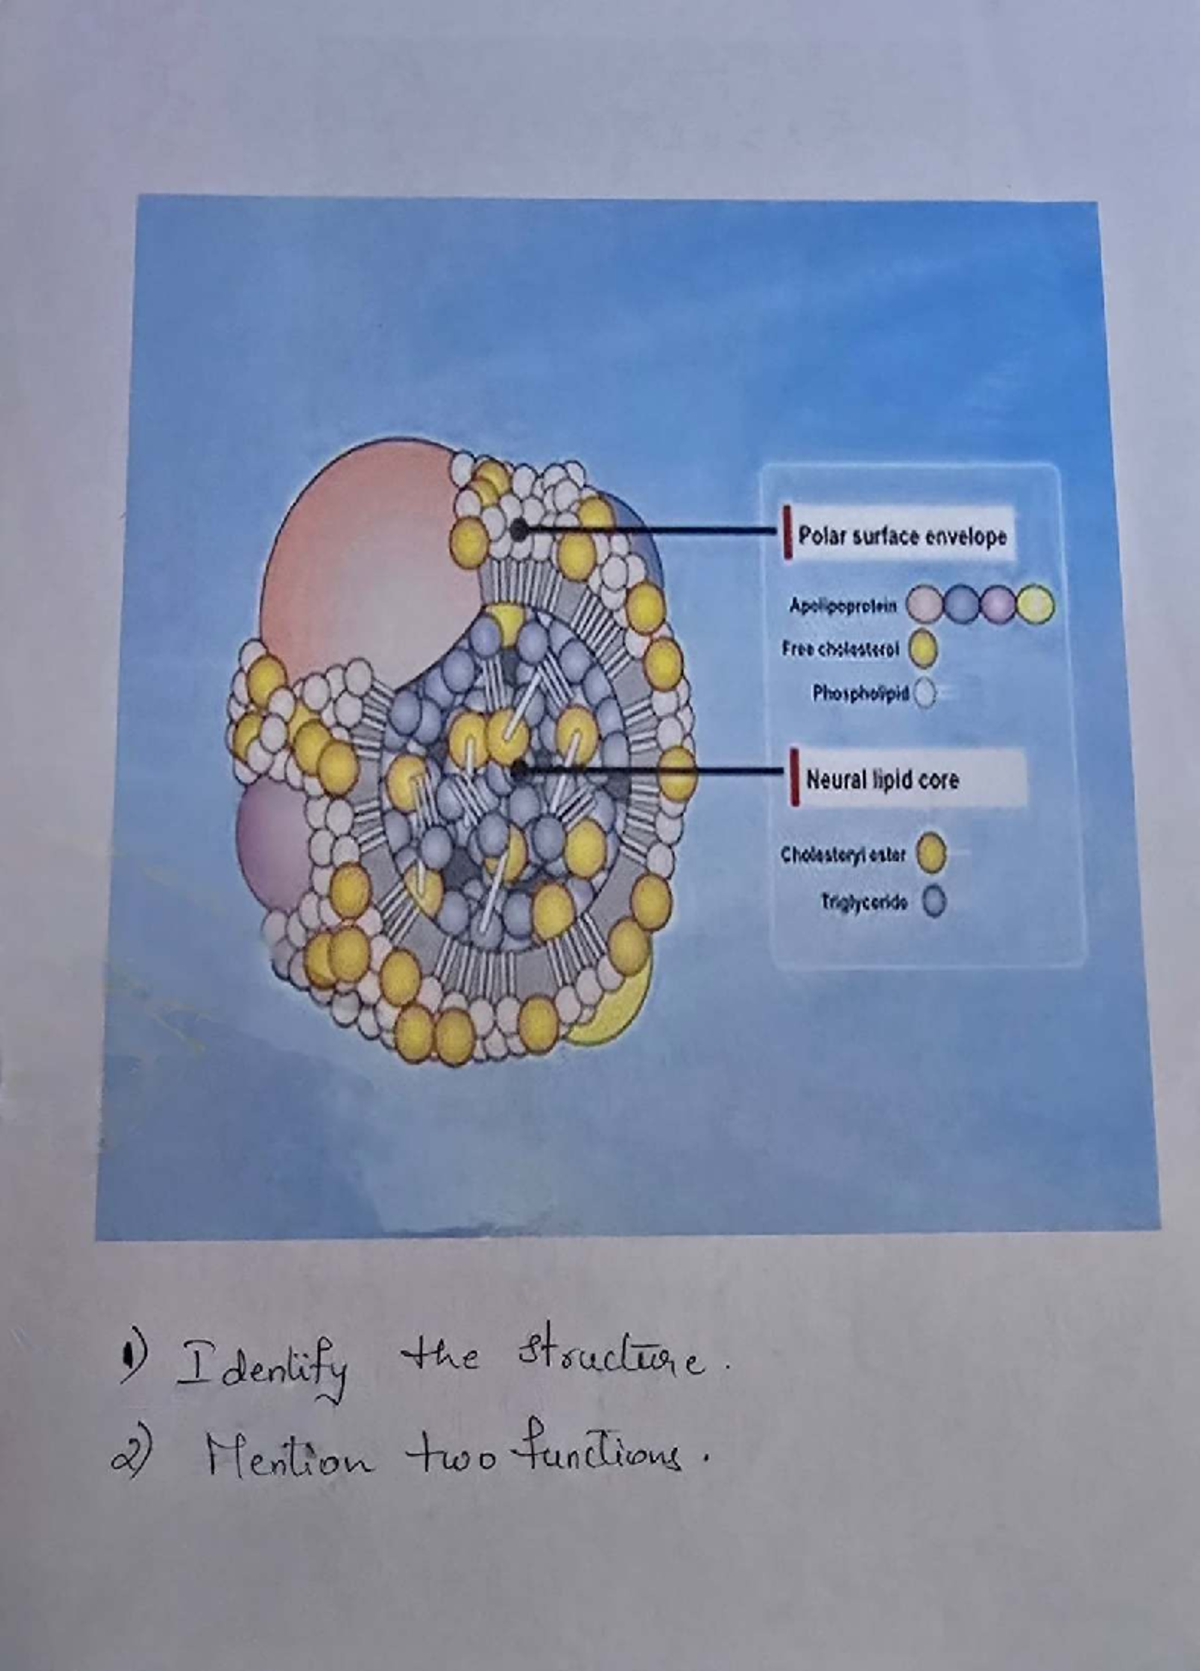 Polar surface envelope
Apolipoprotein
Free cholesterol
Phospholipid
Neural lipid core
Cholesteryl ester
Triglyceride
1) Identify the structure.
2) Mention two functions.